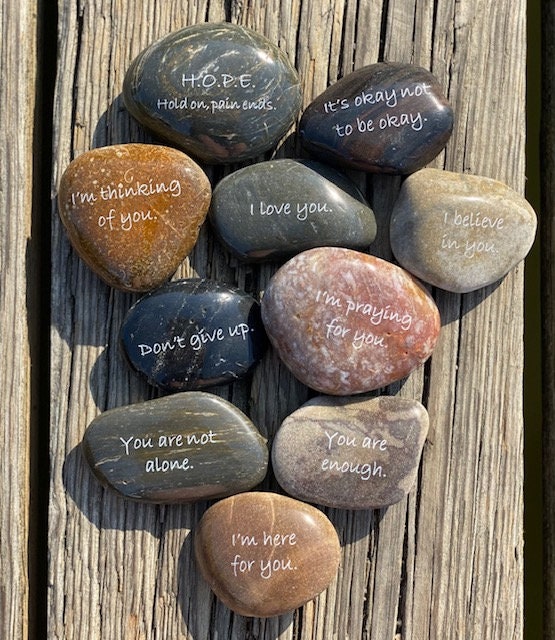 H.O.P.E.
Hold on, pain ends.
It's okay not
to be okay.
I'm thinking
of you.
I love you.
I believe
in you.
Don't give up.
I'm praying
for you
You are not
alone.
You are
enough.
I'm here
for you.